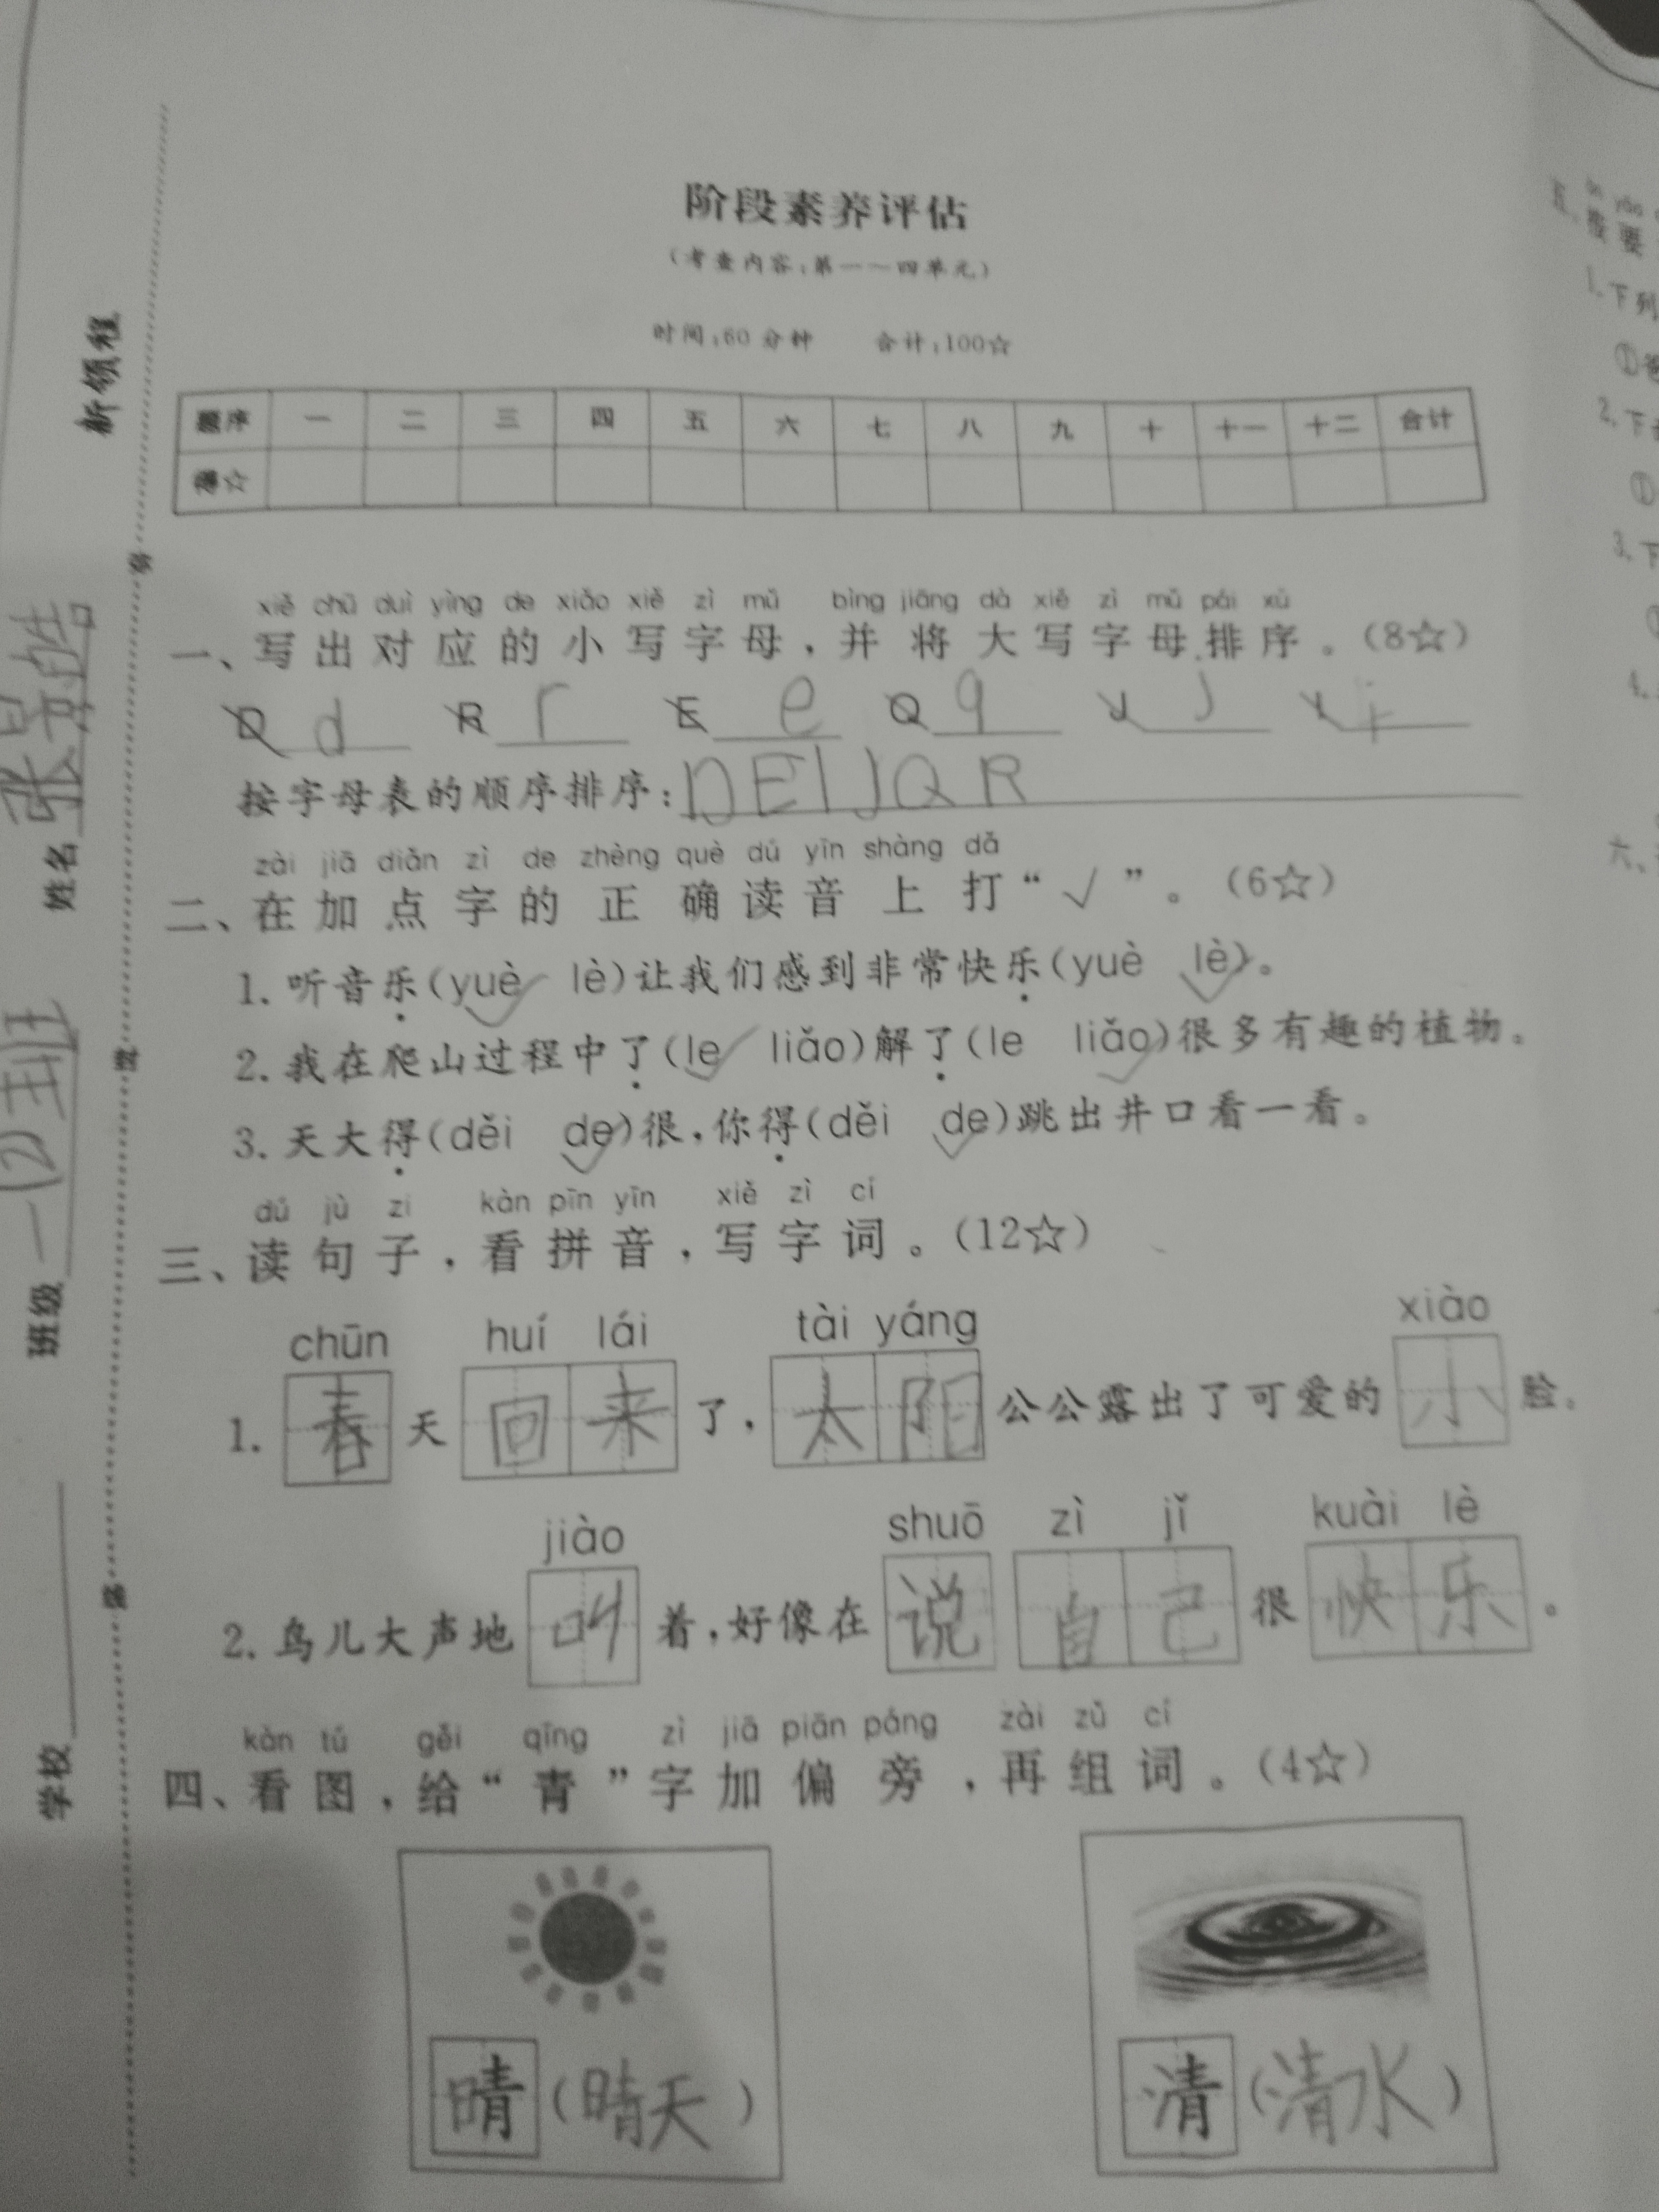 阶段素养评估
(考查内容:第一~四单元)
时间:60分钟 合计:100☆
题序 一 二 三 四 五 六 七 八 九 十 十一 十二 合计
得☆
xiě chū duì yìng de xiǎo xiě zì mǔ bìng jiāng dà xiě zì mǔ pái xù
一、写出对应的小写字母,并将大写字母排序。(8☆)
D d R r E e Q q J j I i
按字母表的顺序排序:DEIJQR
zài jiā diǎn zì de zhèng què dú yīn shàng dǎ
二、在加点字的正确读音上打“√”。(6☆)
1. 听音乐(yuè lè)让我们感到非常快乐(yuè lè)。
2. 我在爬山过程中了(le liǎo)解了(le liǎo)很多有趣的植物。
3. 天大得(děi de)很,你得(děi de)跳出井口看一看。
dú jù zi kàn pīn yīn xiě zì cí
三、读句子,看拼音,写字词。(12☆)
chūn huí lái tài yáng xiào
1. 春天回来了,太阳公公露出了可爱的小脸。
jiào shuō zì jǐ kuài lè
2. 鸟儿大声地叫着,好像在说自己很快乐。
kàn tú gěi qīng zì jiā piān páng zài zǔ cí
四、看图,给“青”字加偏旁,再组词。(4☆)
晴(晴天) 清(清水)
新领程
姓名
班级 一(2)班
学校
弥
封
线
五、按要
àn yāo
1. 下列
①爸
2. 下
①
3. 下
4.
六、